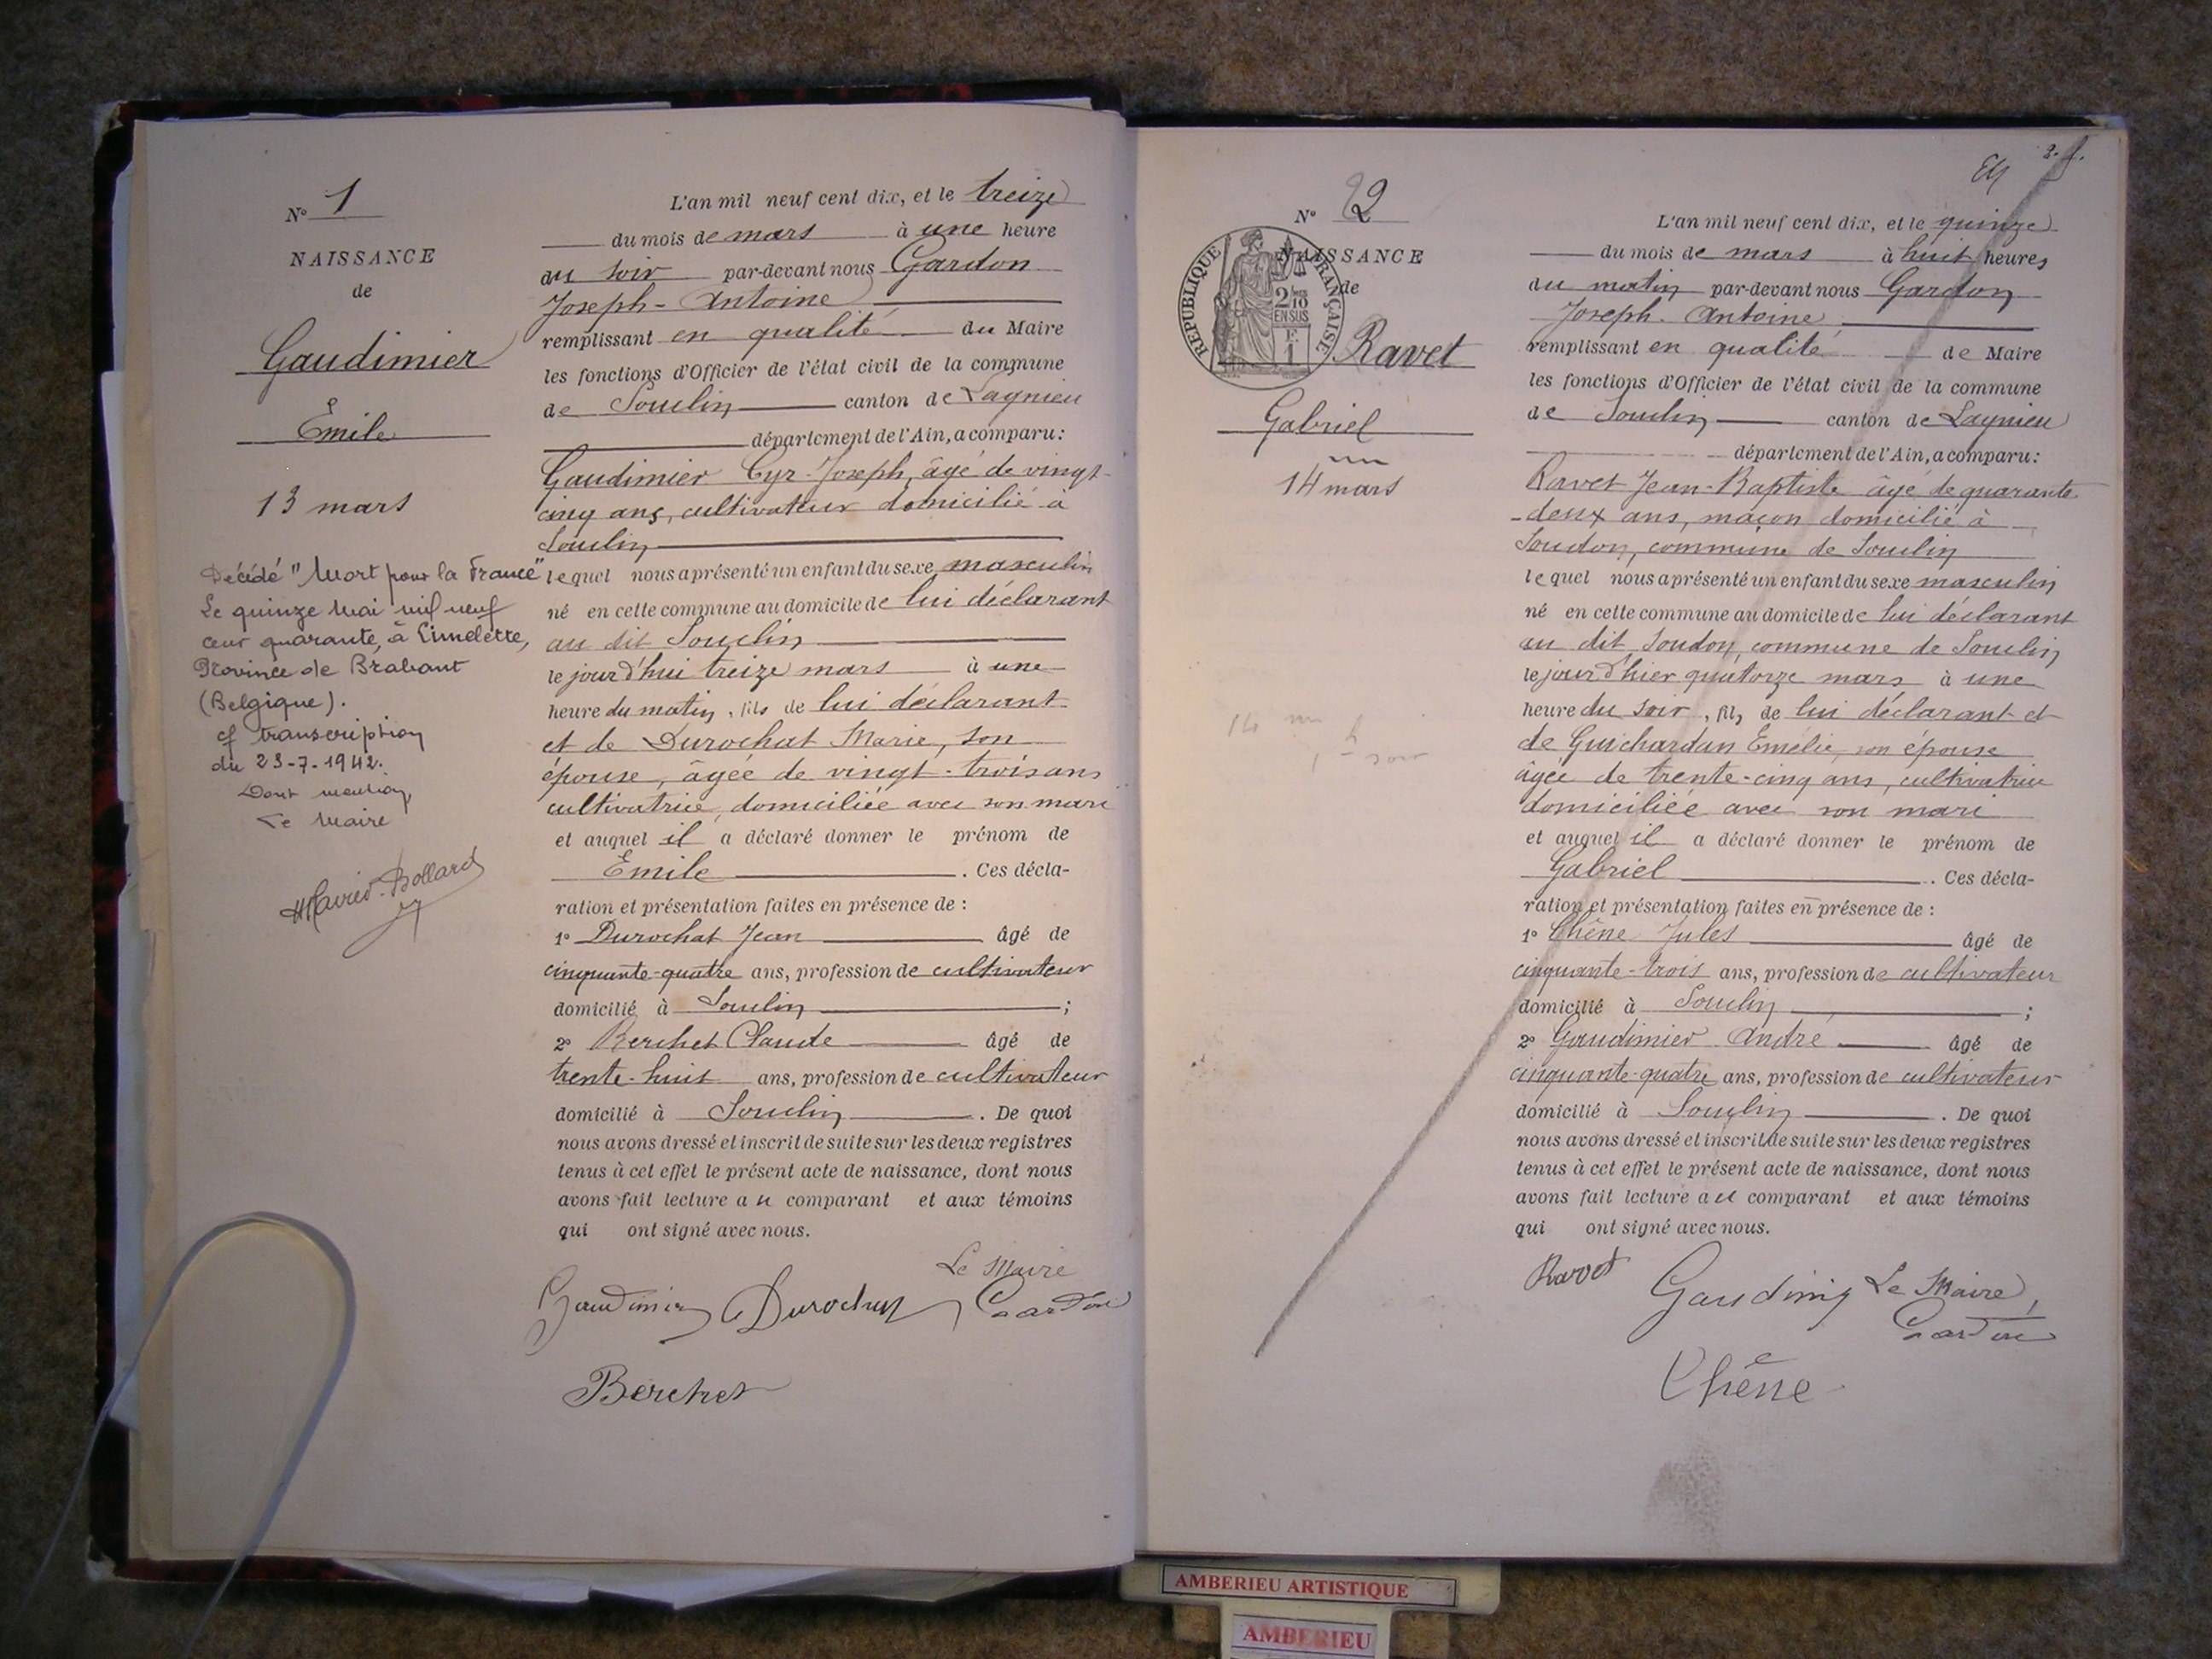 N° 1
NAISSANCE
de
Gaudimier
Émile
13 mars
Décédé "Mort pour la France"
Le quinze Mai mil neuf
cent quarante, à Limelette,
Province de Brabant
(Belgique).
cf transcription
du 23-7-1942.
Dont mention,
Le Maire
L'an mil neuf cent dix, et le treize
du mois de mars à une heure
du soir par-devant nous Gardon
Joseph-Antoine
remplissant en qualité du Maire
les fonctions d'Officier de l'état civil de la commune
de Souclin canton de Lagnieu
département de l'Ain, a comparu:
Gaudimier Cyr-Joseph, âgé de vingt-
cinq ans, cultivateur domicilié à
Souclin
lequel nous a présenté un enfant du sexe masculin
né en cette commune au domicile de lui déclarant
au dit Souclin
le jour d'hui treize mars à une
heure du matin, fils de lui déclarant
et de Durochat Marie, son
épouse, âgée de vingt-trois ans
cultivatrice, domiciliée avec son mari
et auquel il a déclaré donner le prénom de
Émile . Ces décla-
ration et présentation faites en présence de :
1° Durochat Jean âgé de
cinquante-quatre ans, profession de cultivateur
domicilié à Souclin ;
2° Berchet Claude âgé de
trente-huit ans, profession de cultivateur
domicilié à Souclin . De quoi
nous avons dressé et inscrit de suite sur les deux registres
tenus à cet effet le présent acte de naissance, dont nous
avons fait lecture au comparant et aux témoins
qui ont signé avec nous.
Le Maire
Gaudimier Durochat Gardon
Berchet
N° 2
NAISSANCE
de
RÉPUBLIQUE FRANÇAISE
2/10
EN SUS
F.
1
Ravet
Gabriel
14 mars
14 m
1 h soir
2.
L'an mil neuf cent dix, et le quinze
du mois de mars à huit heures
du matin par-devant nous Gardon
Joseph-Antoine
remplissant en qualité de Maire
les fonctions d'Officier de l'état civil de la commune
de Souclin canton de Lagnieu
département de l'Ain, a comparu:
Ravet Jean-Baptiste âgé de quarante
-deux ans, maçon domicilié à
Soudon, commune de Souclin
lequel nous a présenté un enfant du sexe masculin
né en cette commune au domicile de lui déclarant
au dit Soudon, commune de Souclin
le jour d'hier quatorze mars à une
heure du soir, fils de lui déclarant et
de Guichardan Émélie, son épouse
âgée de trente-cinq ans, cultivatrice
domiciliée avec son mari
et auquel il a déclaré donner le prénom de
Gabriel . Ces décla-
ration et présentation faites en présence de :
1° Chêne Jules âgé de
cinquante-trois ans, profession de cultivateur
domicilié à Souclin ;
2° Gaudimier André âgé de
cinquante-quatre ans, profession de cultivateur
domicilié à Souclin . De quoi
nous avons dressé et inscrit de suite sur les deux registres
tenus à cet effet le présent acte de naissance, dont nous
avons fait lecture au comparant et aux témoins
qui ont signé avec nous.
Ravet Le Maire,
Gardon
Chêne
AMBERIEU ARTISTIQUE
AMBERIEU